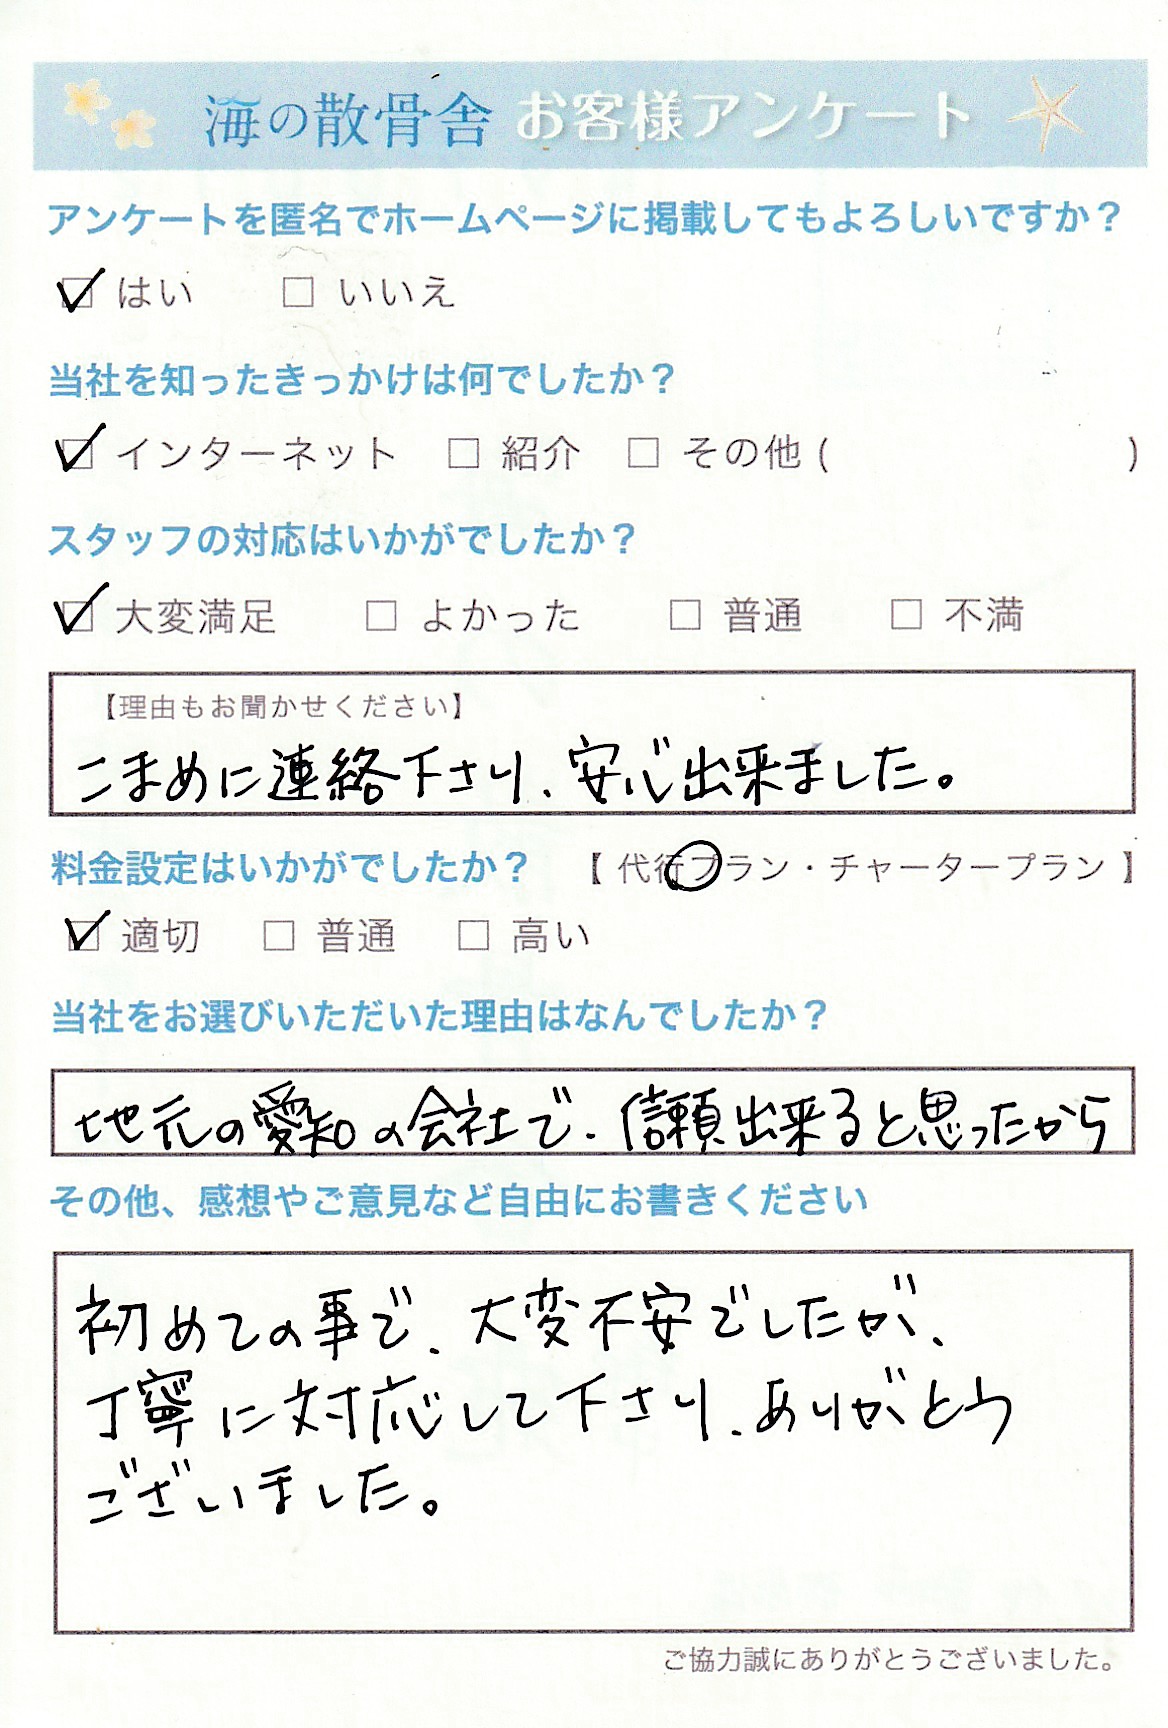 海の散骨舎 お客様アンケート
アンケートを匿名でホームページに掲載してもよろしいですか？
☑ はい □ いいえ
当社を知ったきっかけは何でしたか？
☑ インターネット □ 紹介 □ その他 ( )
スタッフの対応はいかがでしたか？
☑ 大変満足 □ よかった □ 普通 □ 不満
【理由もお聞かせください】
こまめに連絡下さり、安心出来ました。
料金設定はいかがでしたか？ 【 代行プラン・チャータープラン 】
☑ 適切 □ 普通 □ 高い
当社をお選びいただいた理由はなんでしたか？
地元の愛知の会社で、信頼出来ると思ったから
その他、感想やご意見など自由にお書きください
初めての事で、大変不安でしたが、
丁寧に対応して下さり、ありがとう
ございました。
ご協力誠にありがとうございました。